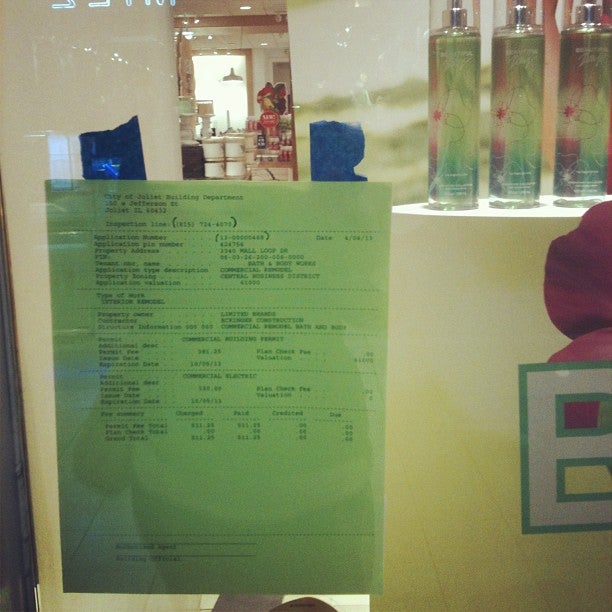 City of Joliet Building Department
150 w Jefferson St
Joliet IL 60432
Inspection line: (815) 724-4070
Application Number (13-00000468) Date 4/04/13
Application pin number 424756
Property Address 3340 MALL LOOP DR
PIN: 06-03-26-200-006-0000
Tenant nbr, name BATH & BODY WORKS
Application type description COMMERCIAL REMODEL
Property Zoning CENTRAL BUSINESS DISTRICT
Application valuation 61000
Type of Work
INTERIOR REMODEL
Property owner LIMITED BRANDS
Contractor CONSTRUCTION
Structure Information 000 000 COMMERCIAL REMODEL BATH AND BODY
Permit COMMERCIAL BUILDING PERMIT
Additional desc
Permit Fee 381.25 Plan Check Fee .00
Issue Date Valuation 61000
Expiration Date 10/05/13
Permit COMMERCIAL ELECTRIC
Additional desc
Permit Fee 130.00 Plan Check Fee .00
Issue Date Valuation 0
Expiration Date 10/05/13
Fee summary Charged Paid Credited Due
Permit Fee Total 511.25 511.25 .00 .00
Plan Check Total .00 .00 .00 .00
Grand Total 511.25 511.25 .00 .00
Authorized Agent
Building Official
B